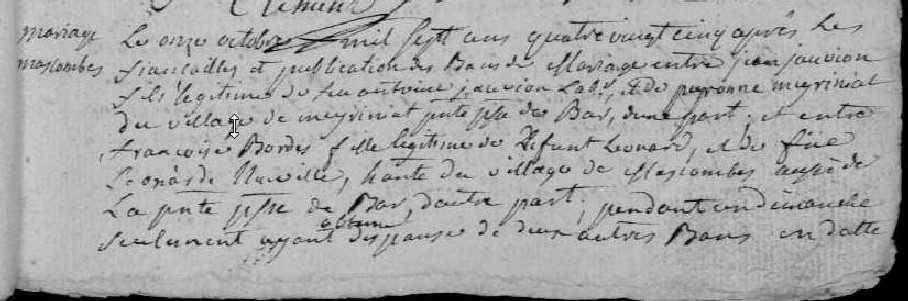 mariage
mascombes
Le onze octobre mil sept cens quatre vingt cinq après les
fiancailles et publication des Bans de Mariage entre jean jauvion
fils légitime de feu antoine jauvion Lab., et de peyronne meyriniat
du village de meyriniat pnte psse de Bar, d'une part; et entre
françoise Bordes fille légitime de Défunt Leonard, et de feüe
Leonarde Neuville, hante du village de Mascombes aussi de
La pnte psse de Bar, d'autre part; pendant un dimanche
seulement ayant obtenu dispense de deux autres Bans en datte